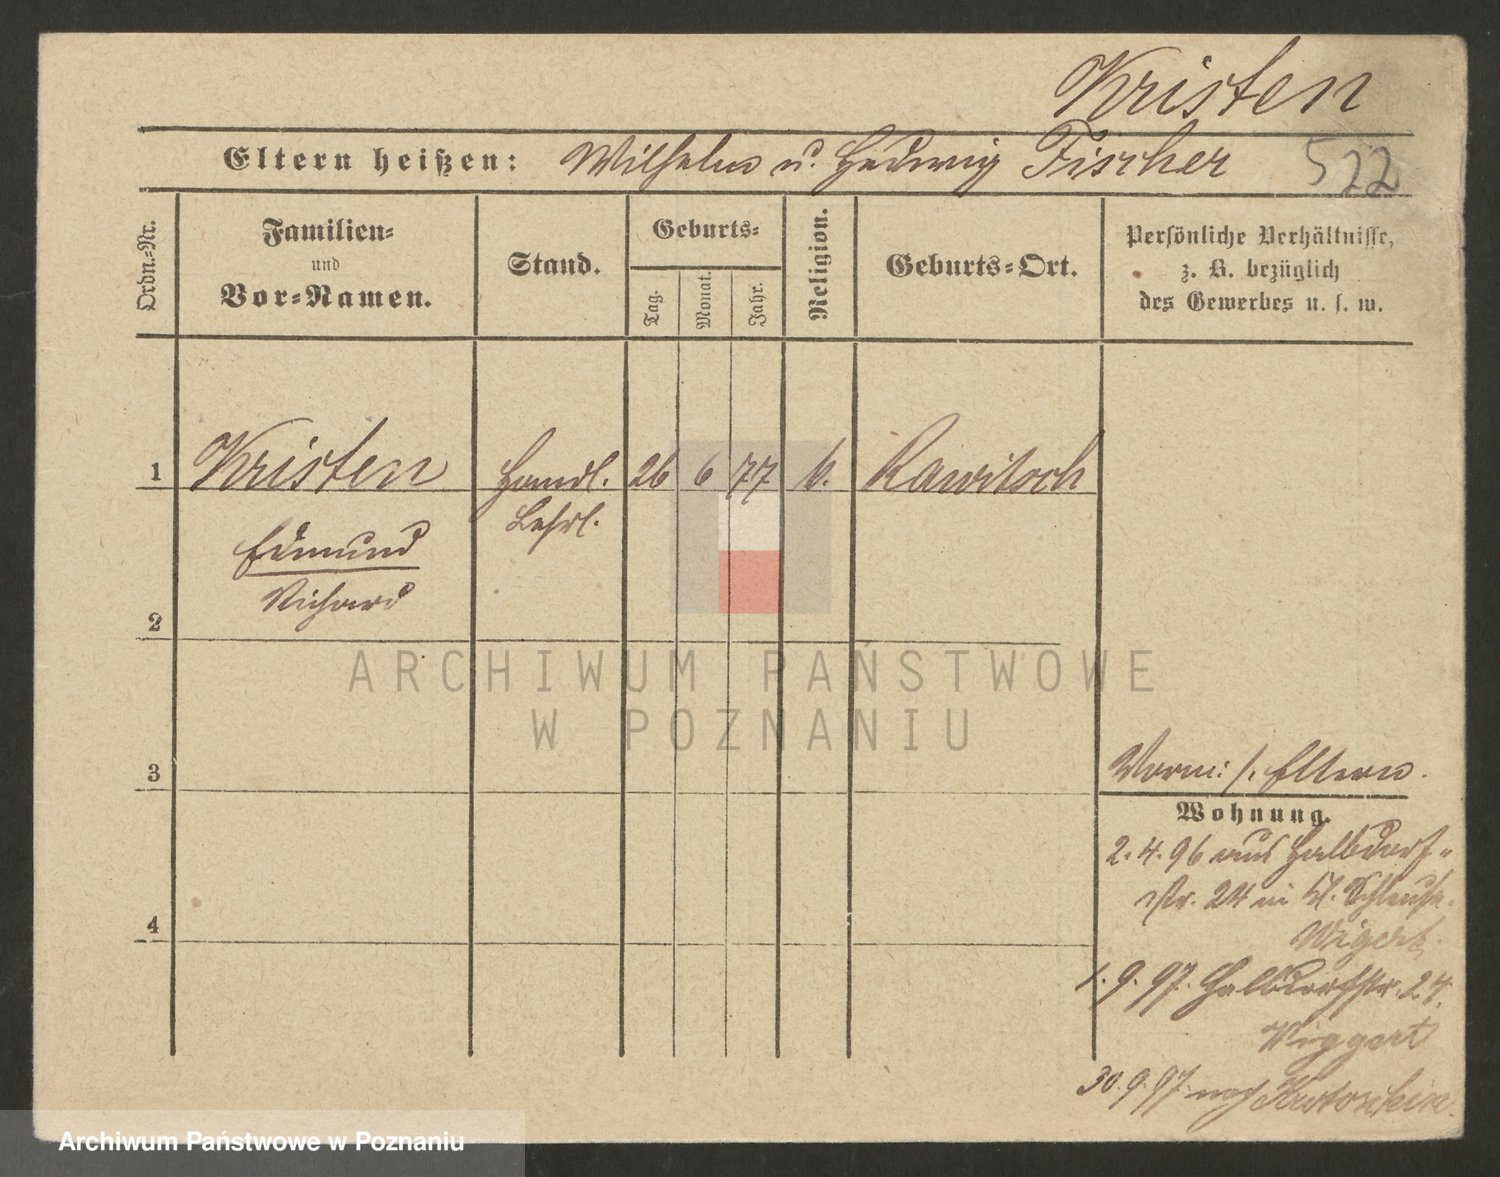 Kristen
Eltern heißen: Wilhelm u. Hedwig Fischer 522
Ordn.-Nr.
Familien-
und
Vor-Namen.
Stand.
Geburts-
Tag.
Monat.
Jahr.
Religion.
Geburts-Ort.
Persönliche Verhältnisse,
z. B. bezüglich
des Gewerbes u. s. w.
1 Kristen Handl. 26 6 77 k. Rawitsch
Lehrl.
Edmund
Richard
2
ARCHIWUM PAŃSTWOWE
W POZNANIU
3
Vorm: s. Eltern.
Wohnung.
2.4.96 aus Halbdorf-
str. 24 in Kl. Schleuse.
Wigert.
4
1.9.97. Halbdorfstr. 24.
Wiggert
30.9.97. nach Krotoschin.
Archiwum Państwowe w Poznaniu